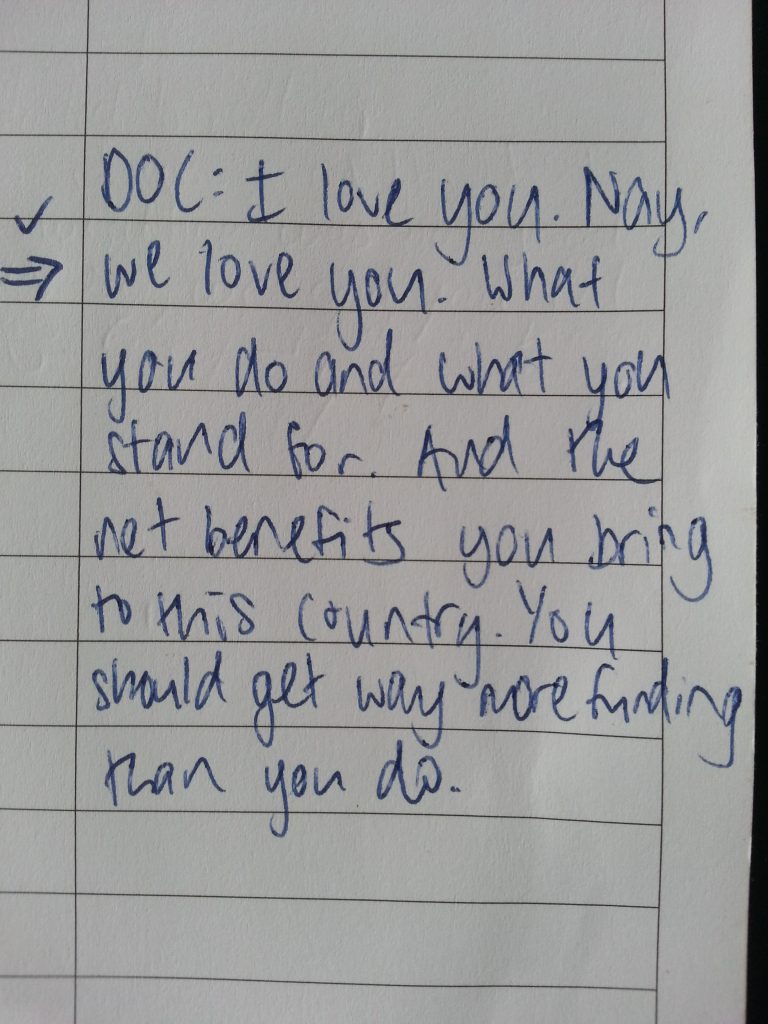 DOC: I love you. Nay,
we love you. What
you do and what you
stand for. And the
net benefits you bring
to this country. You
should get way more funding
than you do.